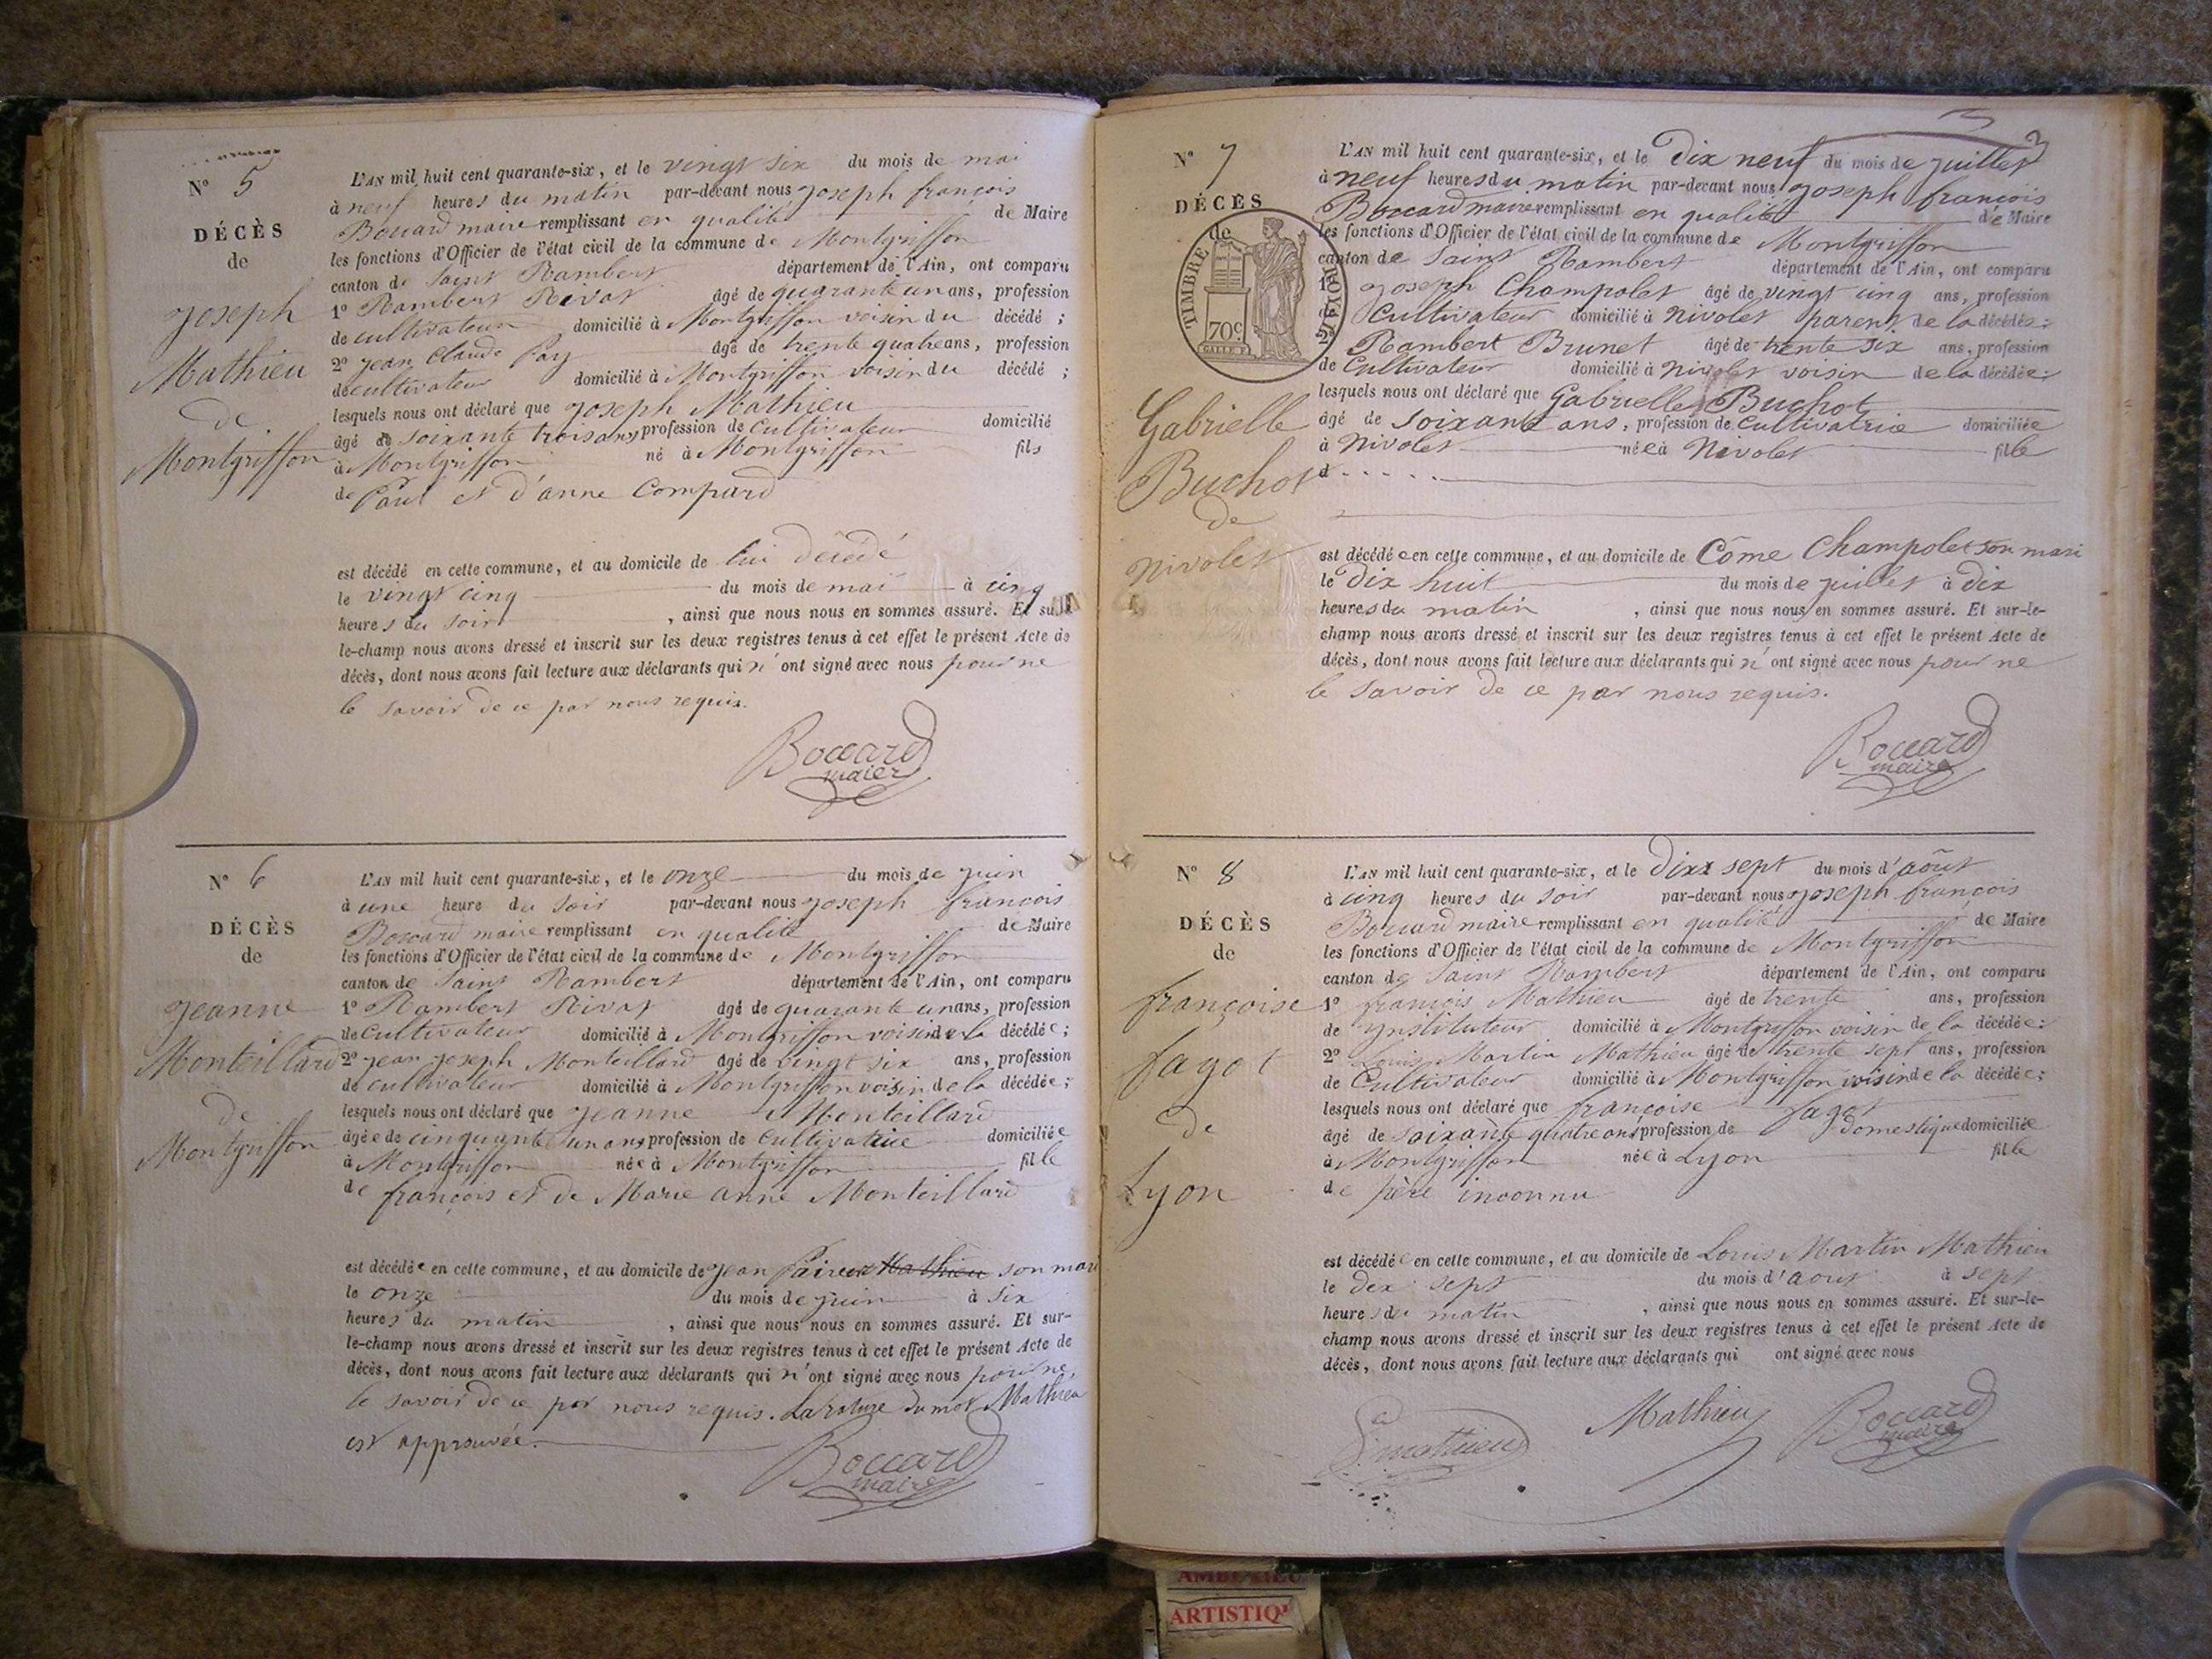 N° 5
DÉCÈS
de
Joseph
Mathieu
de
Montgriffon
L'AN mil huit cent quarante-six, et le vingt six du mois de mai
à neuf heures du matin par-devant nous Joseph françois
Boccard maire remplissant en qualité de Maire
les fonctions d'Officier de l'état civil de la commune de Montgriffon
canton de Saint Rambert département de l'Ain, ont comparu
1° Rambert Rivat âgé de quarante un ans, profession
de cultivateur domicilié à Montgriffon voisin du décédé ;
2° Jean Claude Pay âgé de trente quatre ans, profession
de cultivateur domicilié à Montgriffon voisin du décédé ;
lesquels nous ont déclaré que Joseph Mathieu
âgé de soixante trois ans profession de Cultivateur domicilié
à Montgriffon né à Montgriffon fils
de Paul et d'anne Compard
est décédé en cette commune, et au domicile de lui décédé
le vingt cinq du mois de mai à cinq
heures du soir , ainsi que nous nous en sommes assuré. Et sur-
le-champ nous avons dressé et inscrit sur les deux registres tenus à cet effet le présent Acte de
décès, dont nous avons fait lecture aux déclarants qui n'ont signé avec nous pour ne
le savoir de ce par nous requis.
Boccard
maire
N° 6
DÉCÈS
de
Jeanne
Monteillard
de
Montgriffon
L'AN mil huit cent quarante-six, et le onze du mois de juin
à une heure du soir par-devant nous Joseph françois
Boccard maire remplissant en qualité de Maire
les fonctions d'Officier de l'état civil de la commune de Montgriffon
canton de Saint Rambert département de l'Ain, ont comparu
1° Rambert Rivat âgé de quarante un ans, profession
de Cultivateur domicilié à Montgriffon voisin de la décédée ;
2° Jean Joseph Monteillard âgé de vingt six ans, profession
de cultivateur domicilié à Montgriffon voisin de la décédée ;
lesquels nous ont déclaré que Jeanne Monteillard
âgée de cinquante un ans profession de Cultivatrice domiciliée
à Montgriffon née à Montgriffon fille
de françois et de Marie anne Monteillard
est décédée en cette commune, et au domicile de Jean Mathieu son mari
le onze du mois de juin à six
heures du matin , ainsi que nous nous en sommes assuré. Et sur-
le-champ nous avons dressé et inscrit sur les deux registres tenus à cet effet le présent Acte de
décès, dont nous avons fait lecture aux déclarants qui n'ont signé avec nous pour ne
le savoir de ce par nous requis. La rature du mot Mathieu
est approuvée.
Boccard
maire
N° 7
DÉCÈS
de
TIMBRE ROYAL
70c
Gabrielle
Buchot
de
Nivolet
L'AN mil huit cent quarante-six, et le Dix neuf du mois de juillet
à neuf heures du matin par-devant nous Joseph françois
Boccard maire remplissant en qualité de Maire
les fonctions d'Officier de l'état civil de la commune de Montgriffon
canton de Saint Rambert département de l'Ain, ont comparu
1° Joseph Champolet âgé de vingt cinq ans, profession
de Cultivateur domicilié à Nivolet parent de la décédée ;
2° Rambert Brunet âgé de trente six ans, profession
de Cultivateur domicilié à Nivolet voisin de la décédée ;
lesquels nous ont déclaré que Gabrielle Buchot
âgé de soixante ans, profession de Cultivatrice domiciliée
à Nivolet née à Nivolet fille
d . . . . .
est décédée en cette commune, et au domicile de Côme Champolet son mari
le Dix huit du mois de juillet à dix
heures du matin , ainsi que nous nous en sommes assuré. Et sur-le-
champ nous avons dressé et inscrit sur les deux registres tenus à cet effet le présent Acte de
décès, dont nous avons fait lecture aux déclarants qui n'ont signé avec nous pour ne
le savoir de ce par nous requis.
Boccard
maire
N° 8
DÉCÈS
de
françoise
fagot
de
Lyon
L'AN mil huit cent quarante-six, et le Dix sept du mois d'août
à cinq heures du soir par-devant nous Joseph françois
Boccard maire remplissant en qualité de Maire
les fonctions d'Officier de l'état civil de la commune de Montgriffon
canton de Saint Rambert département de l'Ain, ont comparu
1° françois Mathieu âgé de trente ans, profession
de Ynstituteur domicilié à Montgriffon voisin de la décédée ;
2° Louis Martin Mathieu âgé de trente sept ans, profession
de Cultivateur domicilié à Montgriffon voisin de la décédée ;
lesquels nous ont déclaré que françoise fagot
âgé de soixante quatre ans profession de domestique domiciliée
à Montgriffon née à Lyon fille
de père inconnu
est décédée en cette commune, et au domicile de Louis Martin Mathieu
le dix sept du mois d'aout à sept
heures du matin , ainsi que nous nous en sommes assuré. Et sur-le-
champ nous avons dressé et inscrit sur les deux registres tenus à cet effet le présent Acte de
décès, dont nous avons fait lecture aux déclarants qui ont signé avec nous
Mathieu
Mathieu
Boccard
maire
ARTISTIQ